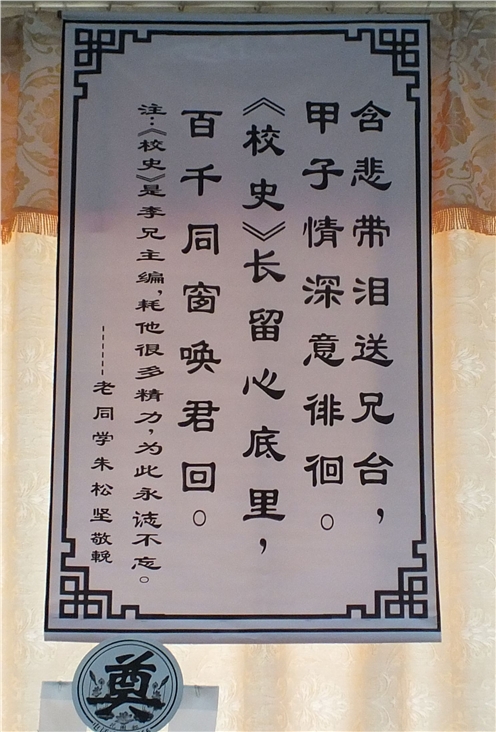 含悲带泪送兄台，
甲子情深意徘徊。
《校史》长留心底里，
百千同窗唤君回。
注：《校史》是李兄主编，耗他很多精力，为此永志不忘。
------老同学朱松坚敬輓
奠